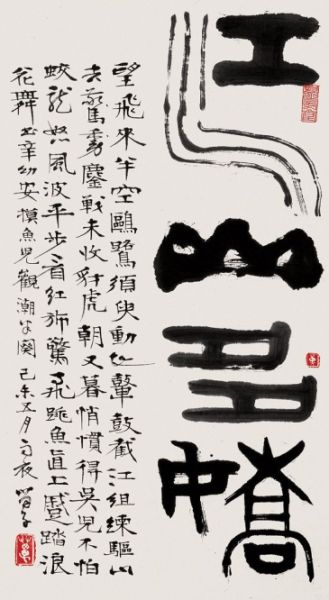 江山多嬌
望飛來半空鷗鷺須臾動地鼙鼓截江組練驅山
去鏖戰未收貔虎朝又暮悄慣得吳兒不怕
蛟龍怒風波平步看紅旆驚飛跳魚直上蹙踏浪
花舞書辛幼安摸魚兒觀潮半闋己未五月雨夜